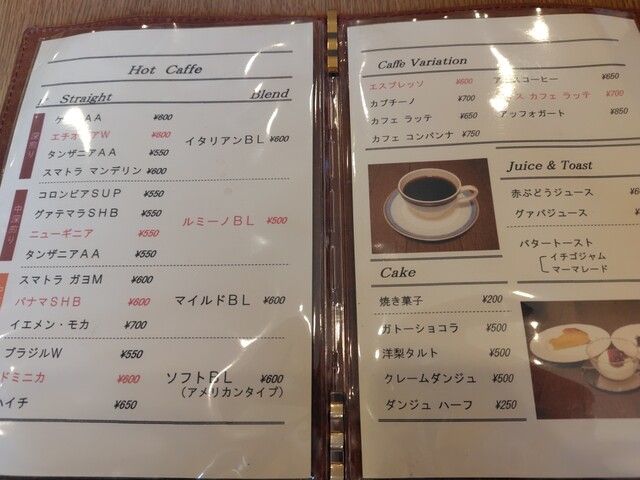 Hot Caffe
Straight Blend
深煎り
AA ¥600
エチオピアW ¥600
タンザニアAA ¥550
イタリアンBL ¥600
スマトラ マンデリン ¥600
中深煎り
コロンビアSUP ¥550
グァテマラSHB ¥550
ルミーノBL ¥500
ニューギニア ¥550
タンザニアAA ¥550
スマトラ ガヨM ¥600
パナマSHB ¥600
マイルドBL ¥600
イエメン・モカ ¥700
ブラジルW ¥550
ドミニカ ¥600
ソフトBL ¥600
(アメリカンタイプ)
ハイチ ¥650
Caffe Variation
エスプレッソ ¥600
コーヒー ¥650
カプチーノ ¥700
カフェ ラッテ ¥700
カフェ ラッテ ¥650
アッフォガート ¥850
カフェ コンパンナ ¥750
Juice & Toast
赤ぶどうジュース
グァバジュース
バタートースト
イチゴジャム
マーマレード
Cake
焼き菓子 ¥200
ガトーショコラ ¥500
洋梨タルト ¥500
クレームダンジュ ¥500
ダンジュ ハーフ ¥250